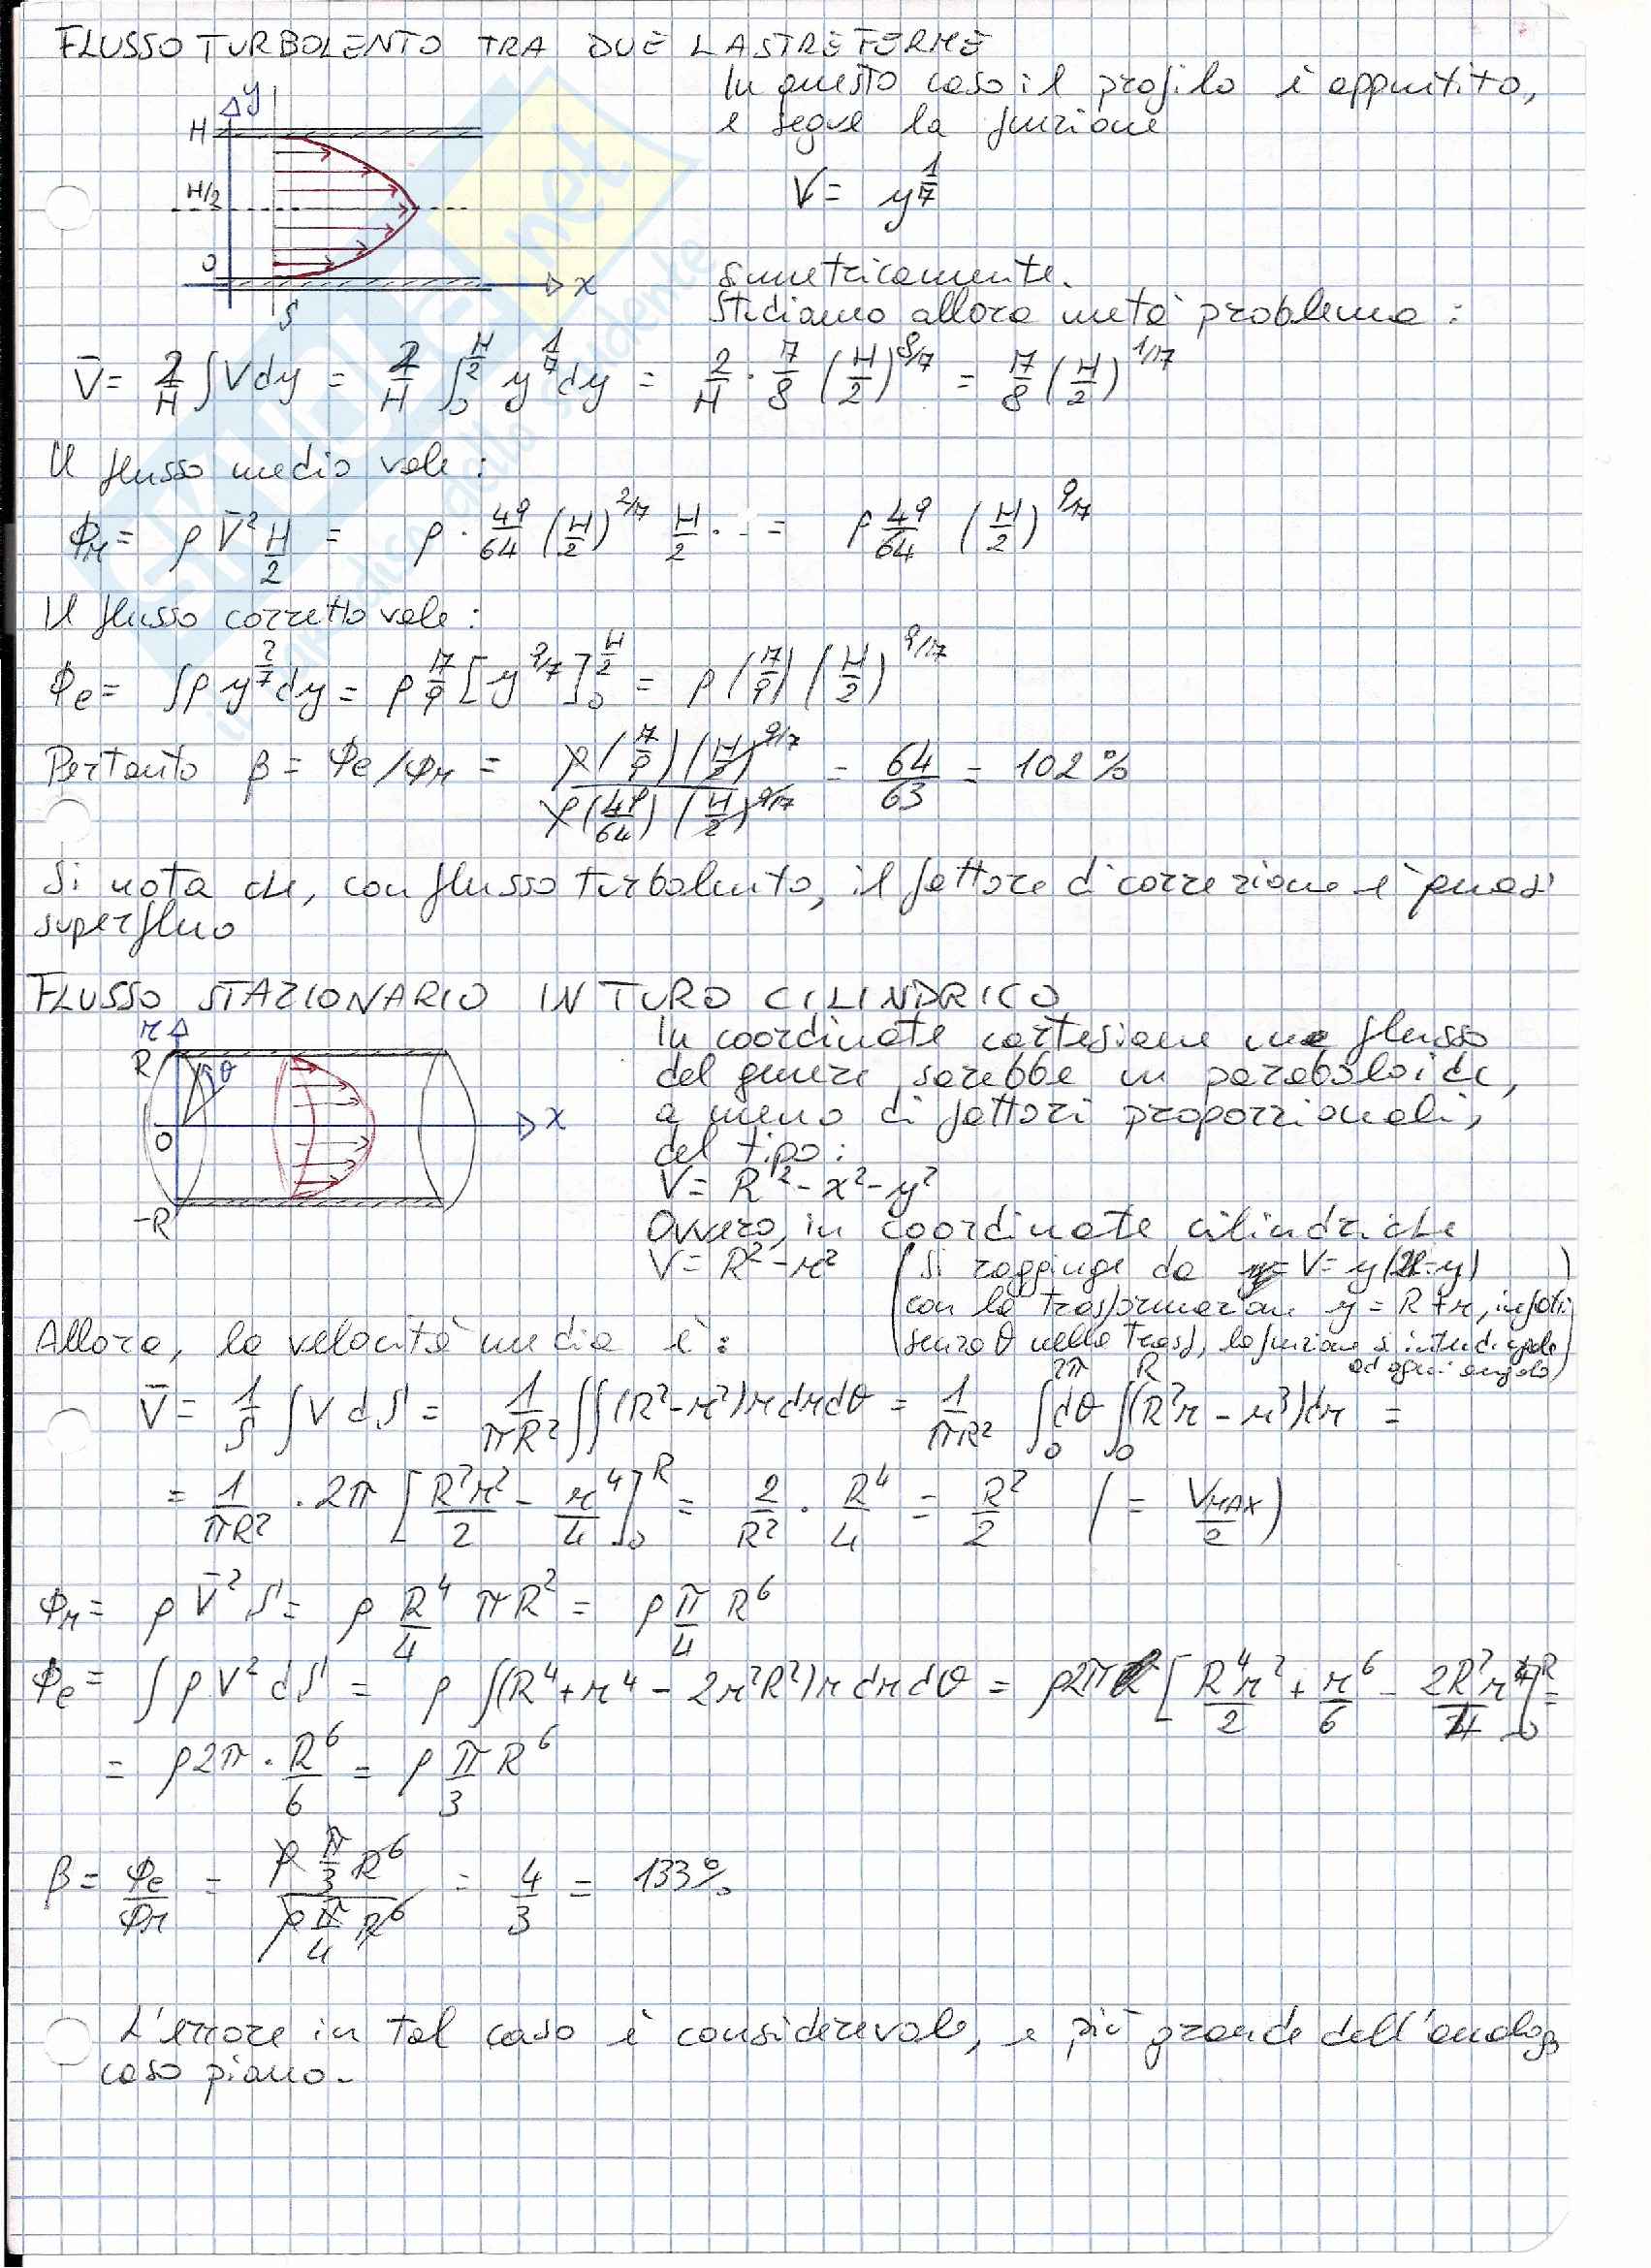 FLUSSO TURBOLENTO TRA DUE LASTRE FERME
In questo caso il profilo è appuntito,
e segue la funzione
V = y^{1/7}
simmetricamente.
Studiamo allora metà problema:
y
H
H/2
0
x
S
V̄ = 2/H ∫V dy = 2/H ∫_0^{H/2} y^{1/7} dy = 2/H · 7/8 (H/2)^{8/7} = 7/8 (H/2)^{1/7}
Il flusso medio vale:
Φ_M = ρ V̄² H/2 = ρ · 49/64 (H/2)^{2/7} H/2 · = ρ 49/64 (H/2)^{9/7}
Il flusso corretto vale:
Φ_e = ∫ρ y^{2/7} dy = ρ 7/9 [y^{9/7}]_0^{H/2} = ρ (7/9) (H/2)^{9/7}
Pertanto β = Φ_e/Φ_M = ρ(7/9)(H/2)^{9/7} / ρ(49/64)(H/2)^{9/7} = 64/63 = 102%
Si nota che, con flusso turbolento, il fattore di correzione è quasi
superfluo
FLUSSO STAZIONARIO IN TUBO CILINDRICO
r
R
θ
0
x
-R
In coordinate cartesiane un flusso
del genere sarebbe un paraboloide,
a meno di fattori proporzionali,
del tipo:
V = R² - x² - y²
Ovvero, in coordinate cilindriche
V = R² - r² (Si raggiunge da V = y(2R-y)
con la trasformazione y = R+r, infatti
senza θ nella trasf, la funzione si intende uguale
ad ogni angolo)
Allora, la velocità media è:
V̄ = 1/S ∫V dS = 1/πR² ∬(R²-r²) r dr dθ = 1/πR² ∫_0^{2π} dθ ∫_0^R (R²r - r³) dr =
= 1/πR² · 2π [R²r²/2 - r⁴/4]_0^R = 2/R² · R⁴/4 = R²/2 (= V_MAX/2)
Φ_M = ρ V̄² S = ρ R⁴/4 πR² = ρ π/4 R⁶
Φ_e = ∫ρ V² dS = ρ ∫(R⁴ + r⁴ - 2r²R²) r dr dθ = ρ2π [R⁴r²/2 + r⁶/6 - 2R²r⁴/4]_0^R =
= ρ2π · R⁶/6 = ρ π/3 R⁶
β = Φ_e/Φ_M = ρ π/3 R⁶ / ρ π/4 R⁶ = 4/3 = 133%
L'errore in tal caso è considerevole, e più grande dell'analogo
caso piano.